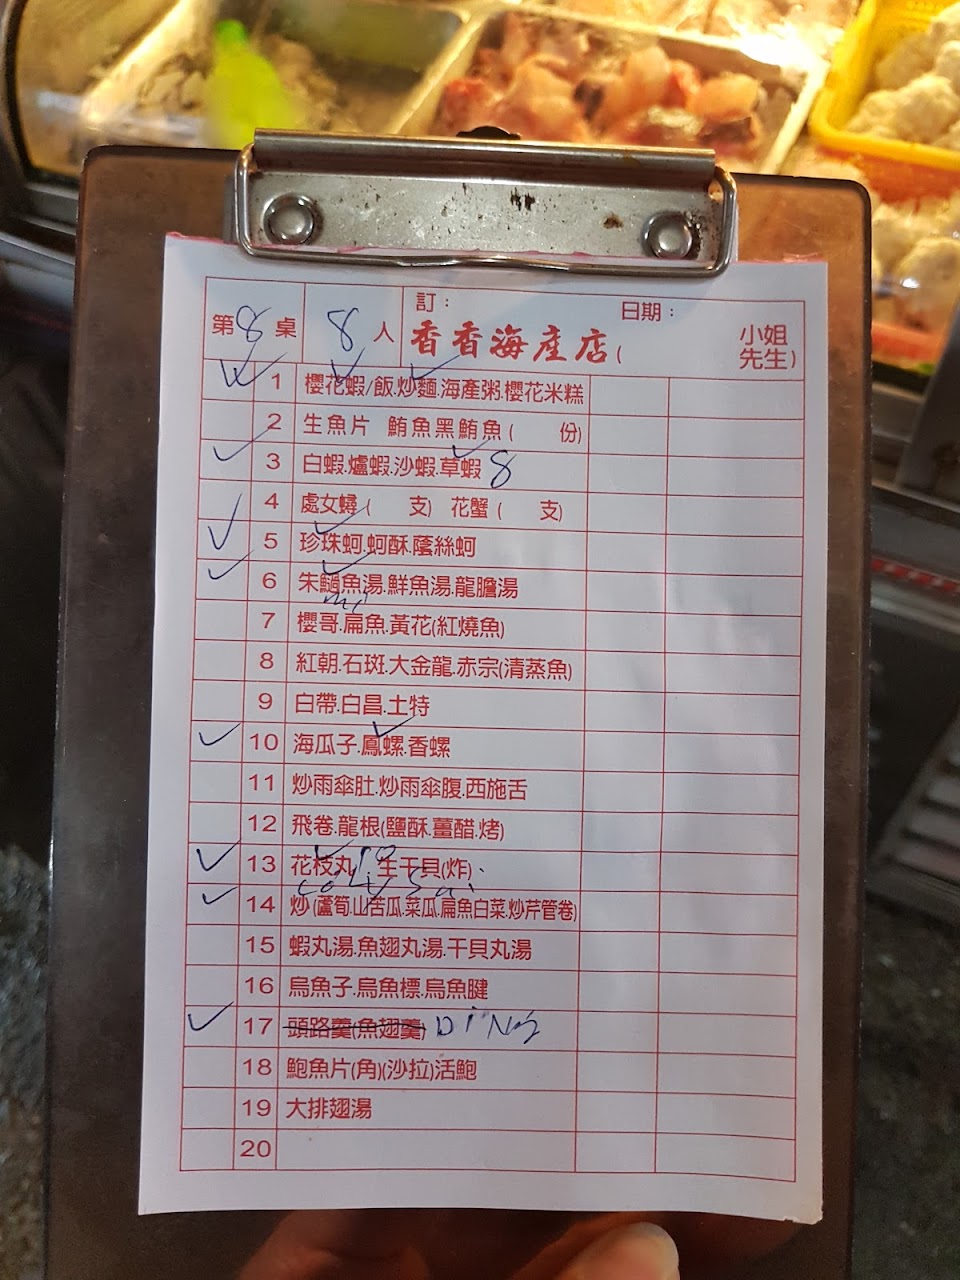 訂： 日期：
第8桌 8人 香香海產店( 小姐
先生)
1 櫻花蝦/飯.炒麵.海產粥.櫻花米糕
2 生魚片 鮪魚黑鮪魚( 份)
3 白蝦.爐蝦.沙蝦.草蝦 8
4 處女蟳( 支) 花蟹( 支)
5 珍珠蚵.蚵酥.蔭絲蚵
6 朱鯧魚湯.鮮魚湯.龍膽湯
7 櫻哥.扁魚.黃花(紅燒魚)
8 紅朝.石斑.大金龍.赤宗(清蒸魚)
9 白帶.白昌.土特
10 海瓜子.鳳螺.香螺
11 炒雨傘肚.炒雨傘腹.西施舌
12 飛卷.龍根(鹽酥.薑醋.烤)
13 花枝丸 10 生干貝(炸)
14 炒(蘆筍.山苦瓜.菜瓜.扁魚白菜.炒芹管卷)
15 蝦丸湯.魚翅丸湯.干貝丸湯
16 烏魚子.烏魚標.烏魚腱
17 頭路羹(魚翅羹) DiNg
18 鮑魚片(角)(沙拉)活鮑
19 大排翅湯
20